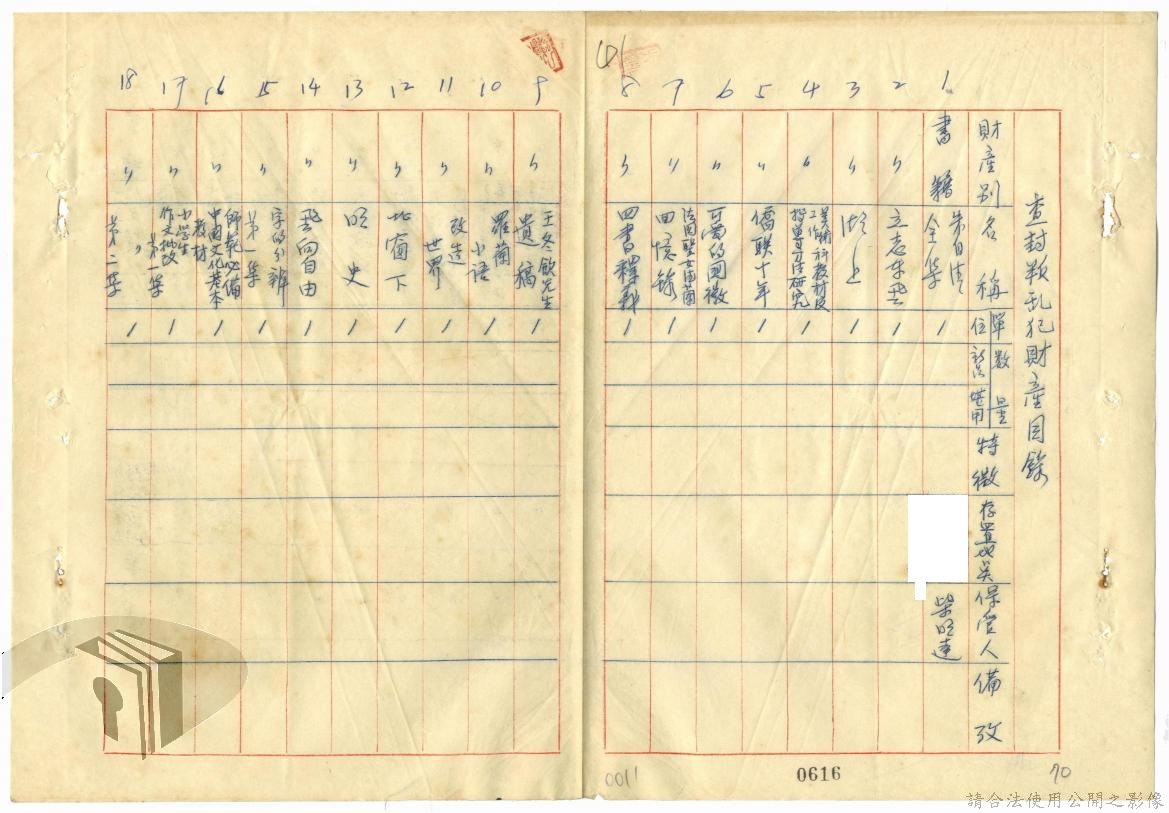 查封叛乱犯財產目錄
財產別
名稱
單位
數量
特徵
存置地奌
保管人
備攷
1 書籍 朱自清全集 1 柴明達
2 〃 立志車走 1
3 〃 湖上 1
4 〃 美術工作科教材及指導方法研究 1
5 〃 僑联十年 1
6 〃 可愛的國徽 1
7 〃 法國聖女由蘭回憶錄 1
8 〃 四書釋義 1
9 〃 王冬飲先生遺稿 1
10 〃 羅蘭小語 1
11 〃 改造世界 1
12 〃 北窗下 1
13 〃 明史 1
14 〃 飛向自由 1
15 〃 字的分辨第一集 1
16 〃 師範必備中國文化基本教材 1
17 〃 小学生作文批改第一集 1
18 〃 〃 第二集 1
0011
0616
70
請合法使用公開之影像